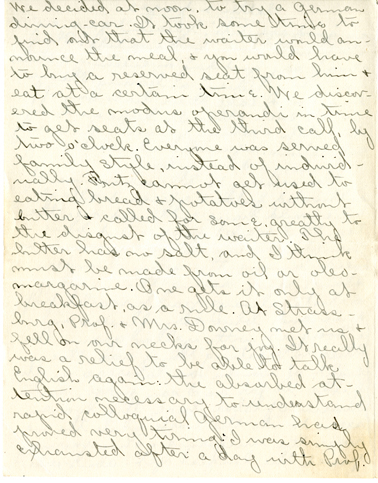 We decided at noon, to try a German
dining-car. It took some time to
find out that the waiter would an-
nounce the meal, & you would have
to buy a reserved seat from him &
eat at a certain time. We discov-
ered the modus operandi in time
to get seats at the third call, by
two o'clock. Everyone was served
family style, instead of individ-
ually. Fritz cannot get used to
eating bread & potatoes without
butter & called for some, greatly to
the disgust of the waiter. The
butter has no salt, and I think
must be made from oil or oleo-
margarine. One gets it only at
breakfast, as a rule. At Strass-
burg, Prof. & Mrs. Downey met us &
fell on our necks for joy. It really
was a relief to be able to talk
English again: the absorbed at-
tention necessary to understand
rapid colloquial German had
proved very tiring. I was simply
exhausted after a day with Prof.